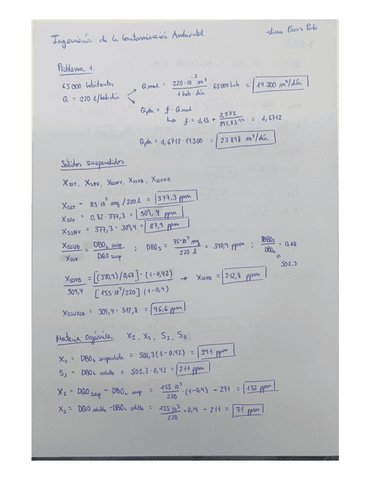 Ingeniería de la Contaminación Ambiental
Problema 1.
65000 habitantes
Q = 220 l/hab·día
Qmed = 220·10⁻³ m³ / 1 hab·día · 65000 hab = 14300 m³/día
Qpta = f · Qmed
f = 1,15 + 2,575 / = 1,6712
Qpta = 1,6712 · 14300 = 23898 m³/día
Sólidos suspendidos
XSST = 83·10³ mg / 220 l = 377,3 ppm
XSSV = 0,82 · 377,3 = 309,4 ppm
= 377,3 - 309,4 = 67,9 ppm
XSSVB / XSSV = DBOL susp / DQO susp ; DBO5 = 75·10³ mg / 220 l = 340,9 ppm ; DBO5 / DBOL = 0,68
501,3
XSSVB / 309,4 = [(340,9)/0,68] · (1-0,42) / [155·10³/220] (1-0,4) → XSSVB = 212,8 ppm
XSSVNB = 309,4 - 212,8 = 96,6 ppm
Materia orgánica
XS = DBOL suspendida = 501,3 (1-0,42) = 291 ppm
SS = DBOL soluble = 501,3 · 0,42 = 211 ppm
XI = DQO susp - DBOL susp = 155·10³ / 220 · (1-0,4) - 291 = 132 ppm
= DQO soluble - DBOL soluble = 155·10³ / 220 · 0,4 - 211 = 71 ppm